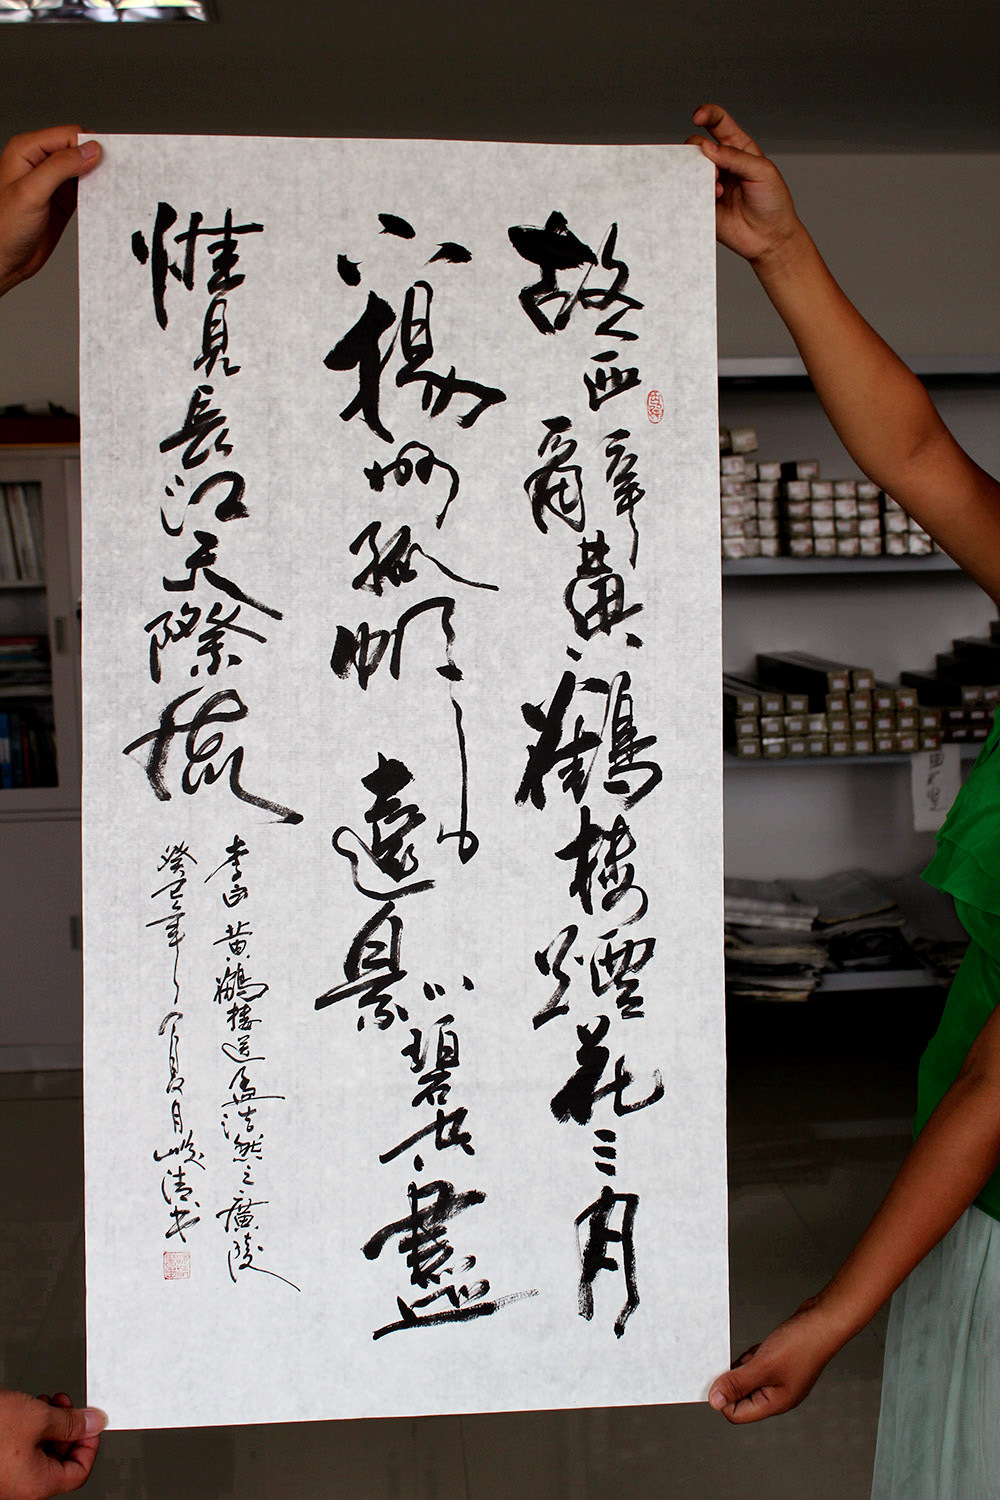 故人西辭黃鶴樓煙花三月
下揚州孤帆遠影碧空盡
惟見長江天際流
李白黃鶴樓送孟浩然之廣陵
癸巳年夏月峻清书